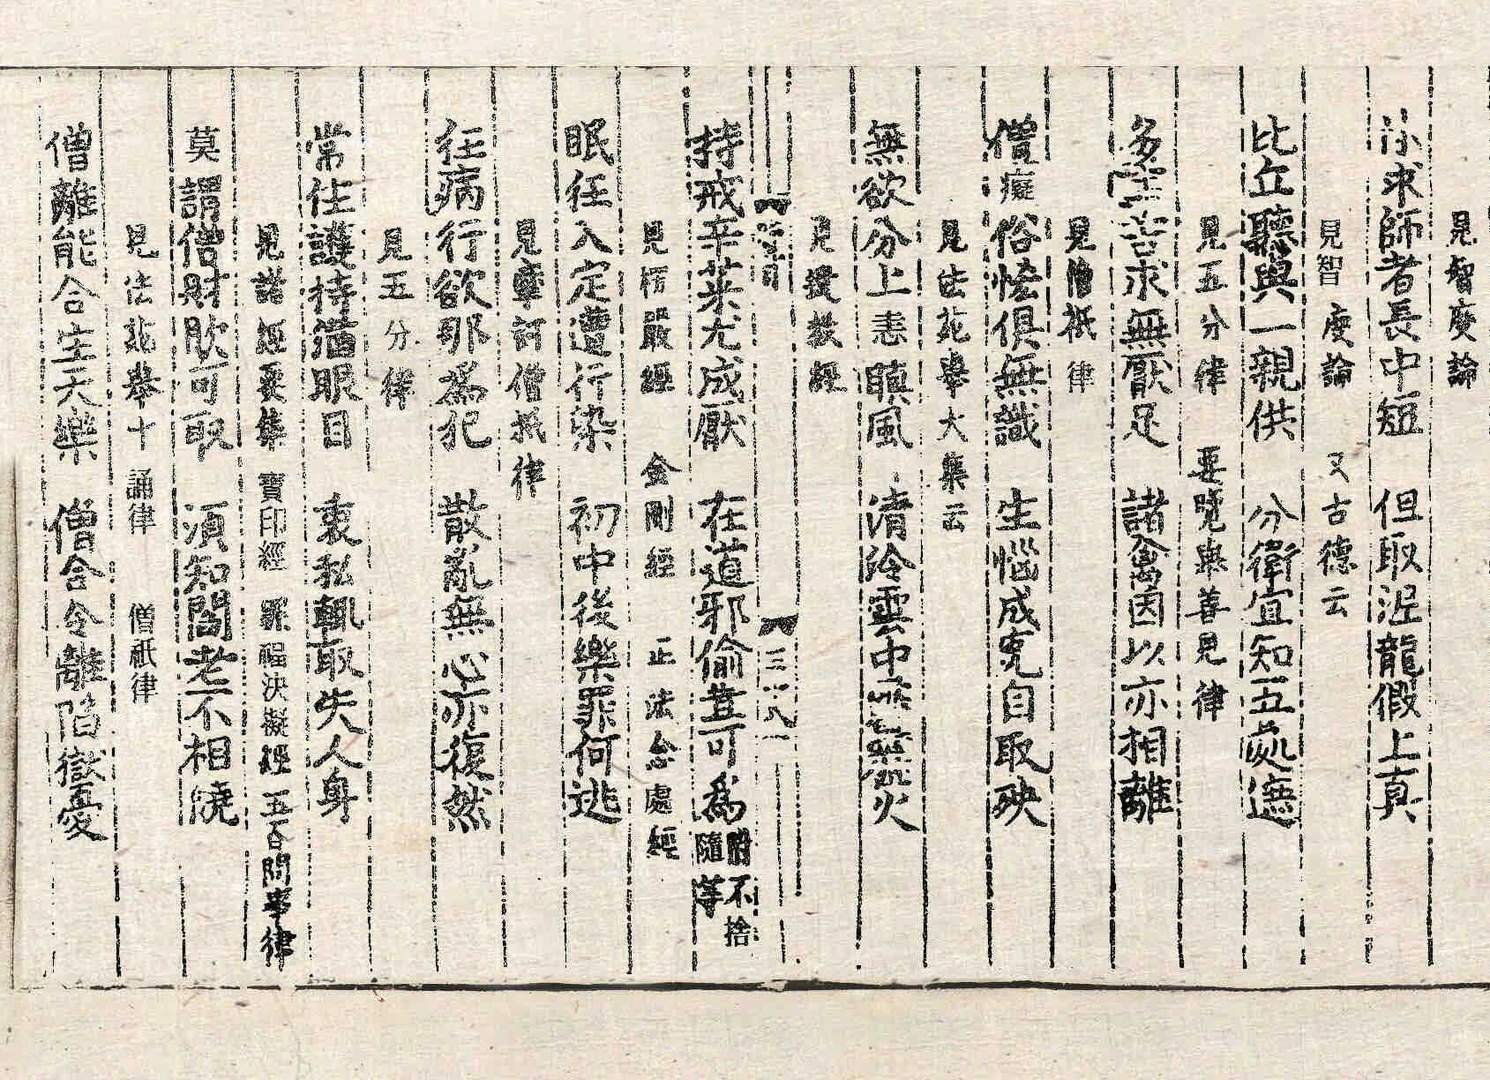 見智度論
求師者長中短　但取涅龍假上真
見智度論　又古德云
比丘聽與一親供　分衛宜知五處遮
見五分律　要覽與善見律
多 苦求無厭足　諸禽因以亦相離
見僧祇律
僧癡俗恠俱無識　生惱成寃自取殃
見法苑擧大集云
無欲分上恚瞋風　清冷雲中 火
見遺教經
三 八
持戒辛菜尤成厭　在道邪偷豈可爲 不捨隨等
見楞嚴經　金剛經　正法念處經
眠在入定遭行染　初中後樂罪何逃
見章訶僧祇律
在病行欲那爲犯　散亂無心亦復然
見五分律
常住護持猶眼目　衷私輒取失人身
見諸經要集　寶印經　罪福決擬經　五百問事律
莫謂僧財欺可取　須知閻老不相饒
見法苑擧十誦律　僧祇律
僧離能合生天樂　僧合令離陷獄憂